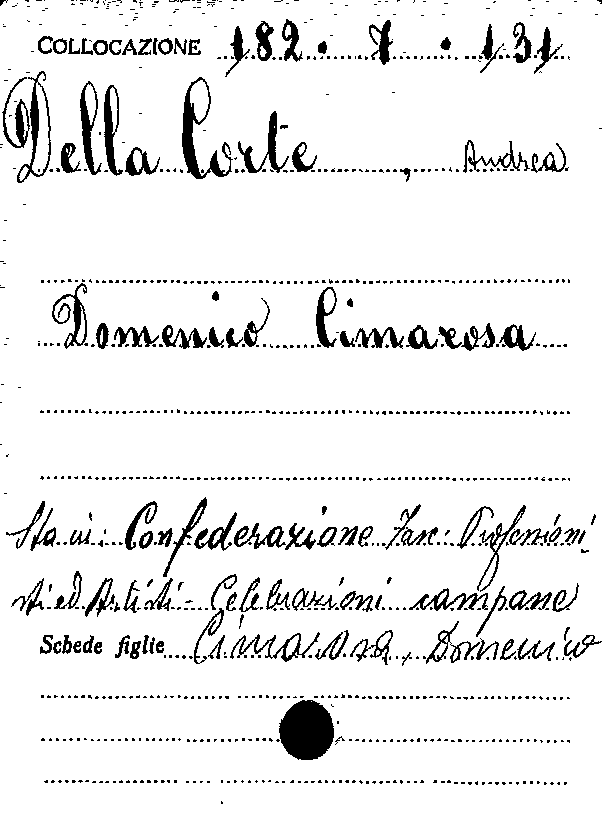 COLLOCAZIONE 182. 7. 131
Della Corte, Andrea
Domenico Cimarosa
Sta in: Confederazione Fasc: Professioni
sti ed Artisti - Celebrazioni campane
Schede figlie Cimarosa, Domenico